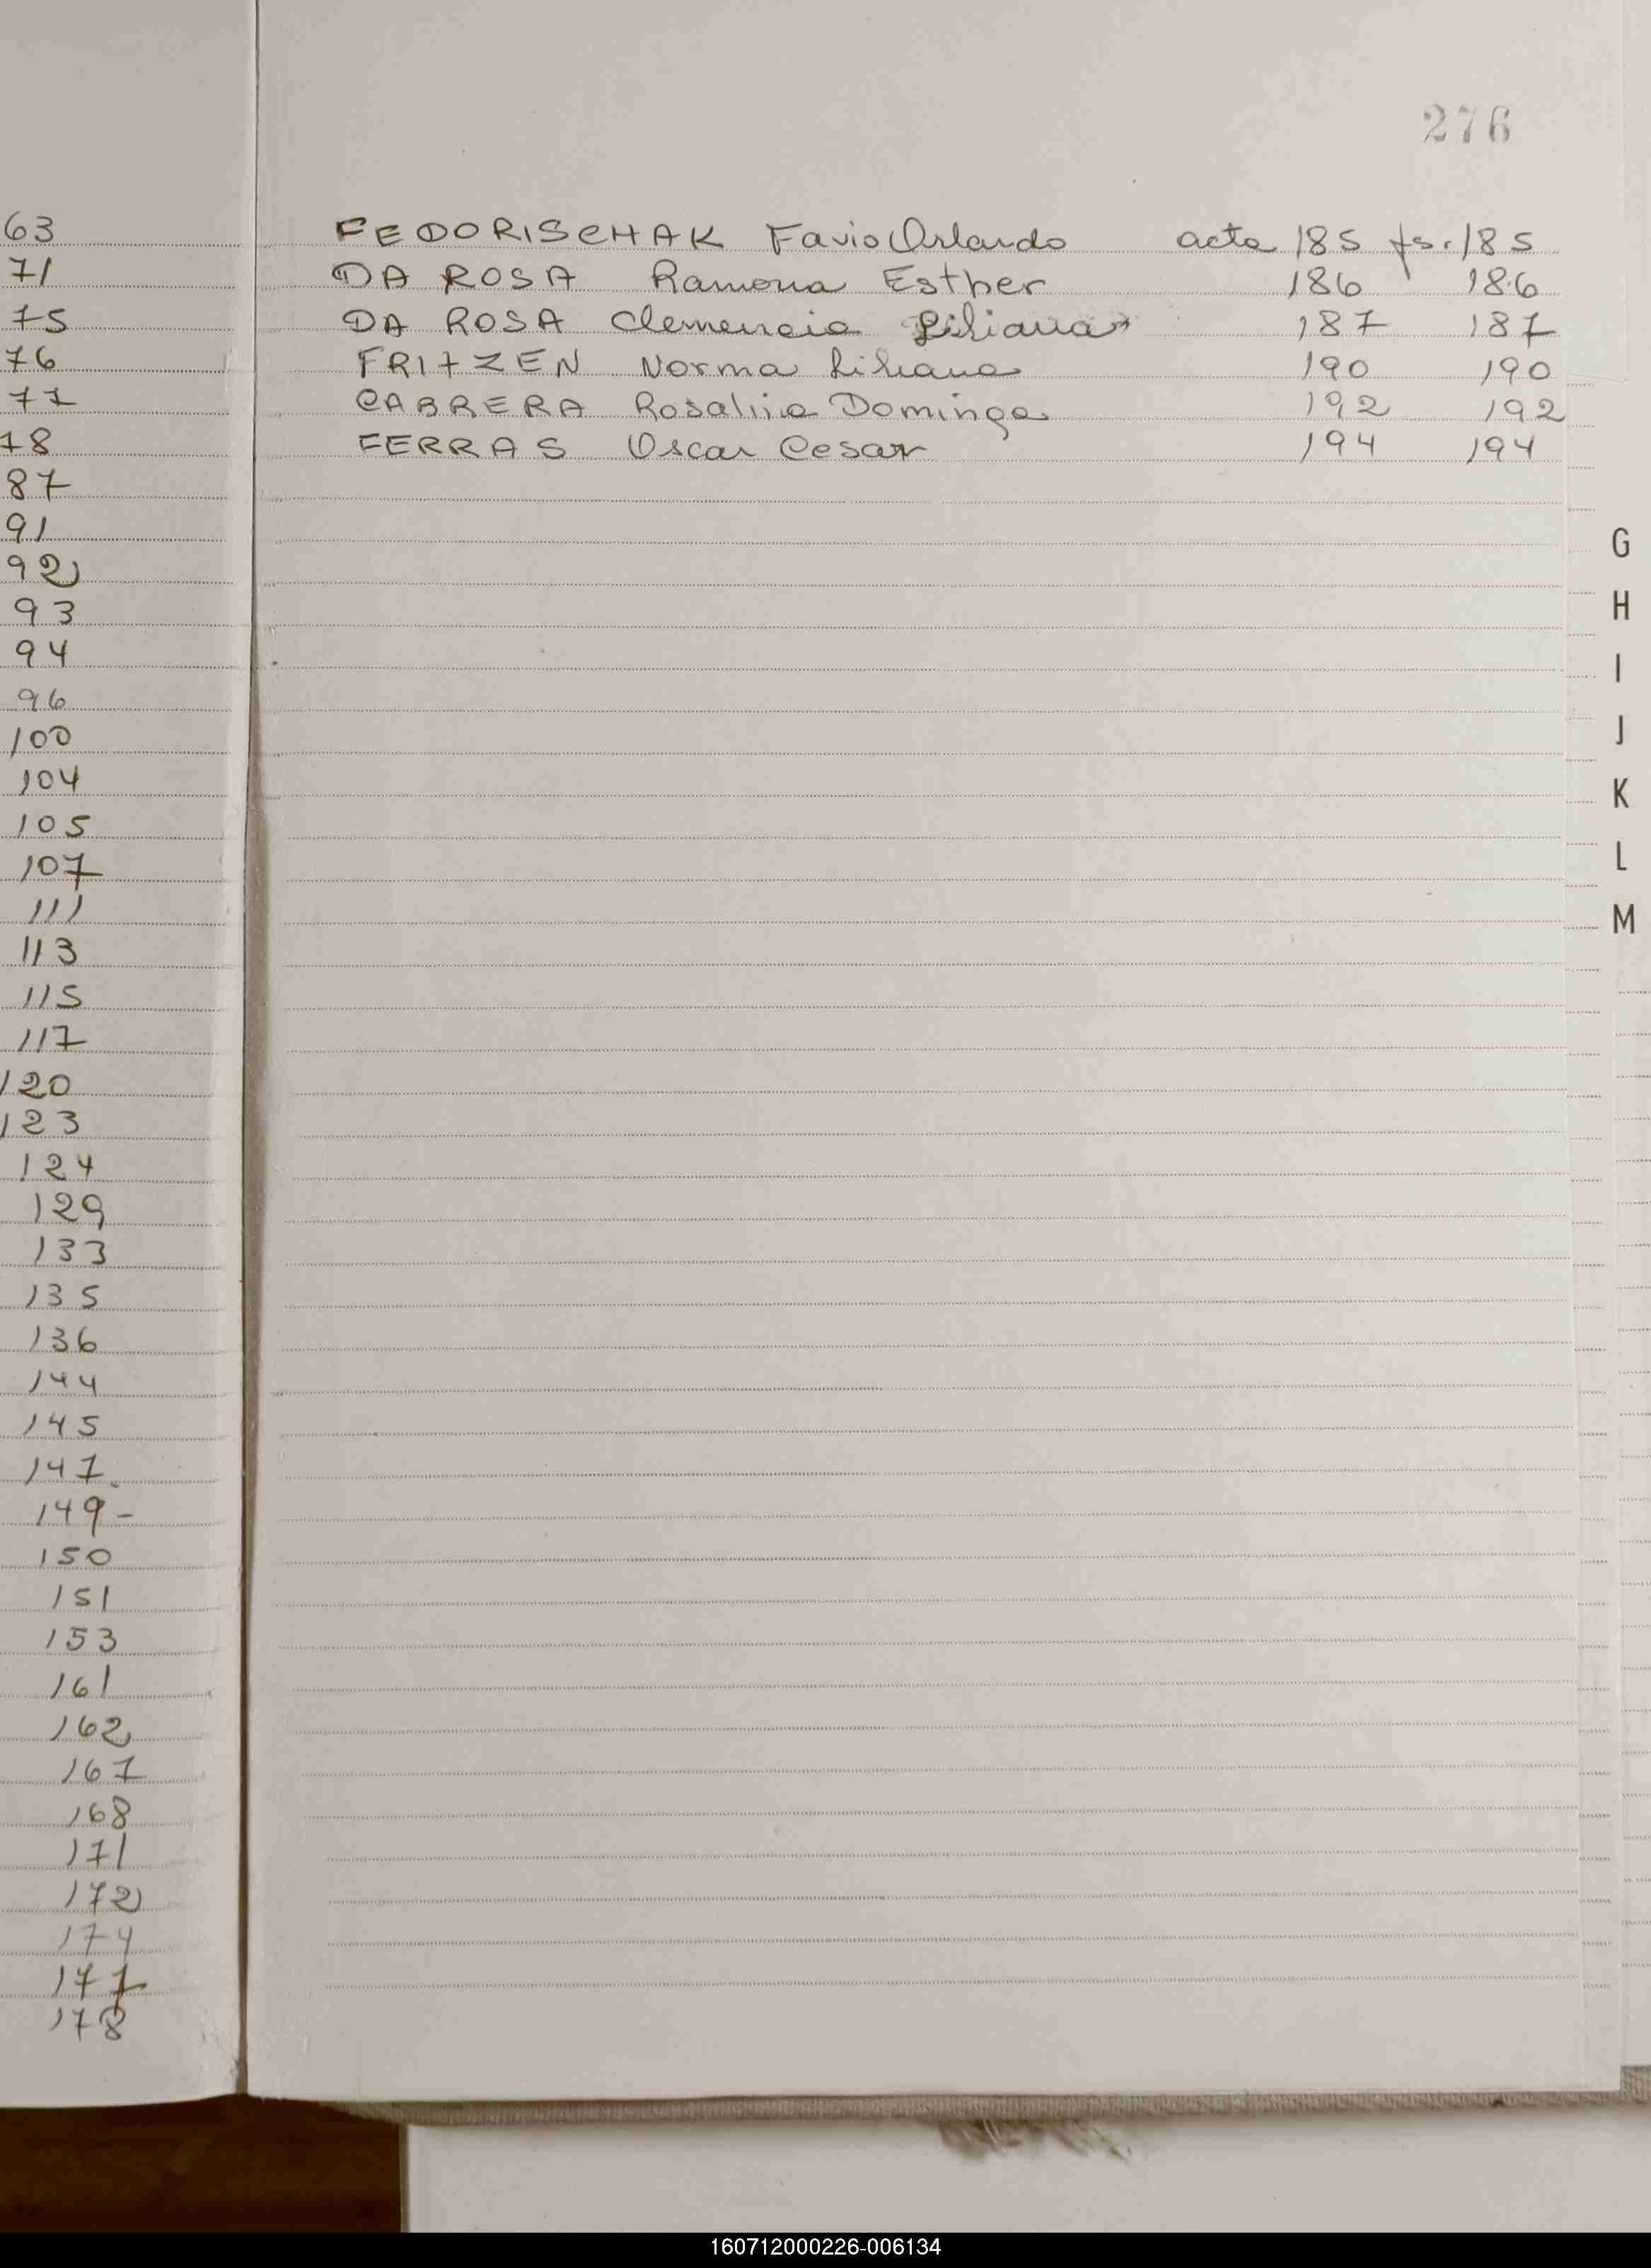 276
63
71
75
76
77
78
87
91
92
93
94
96
100
104
105
107
111
113
115
117
120
123
124
129
133
135
136
144
145
147
149-
150
151
153
161
162
167
168
171
172
174
177
178
FEDORISCHAK Favio Orlando acta 185 fs. 185
DA ROSA Ramona Esther 186 186
DA ROSA Clemencia Liliana 187 187
FRITZEN Norma Liliana 190 190
CABRERA Dominga 192 192
FERRAS Oscar Cesar 194 194
G
H
I
J
K
L
M
160712000226-006134